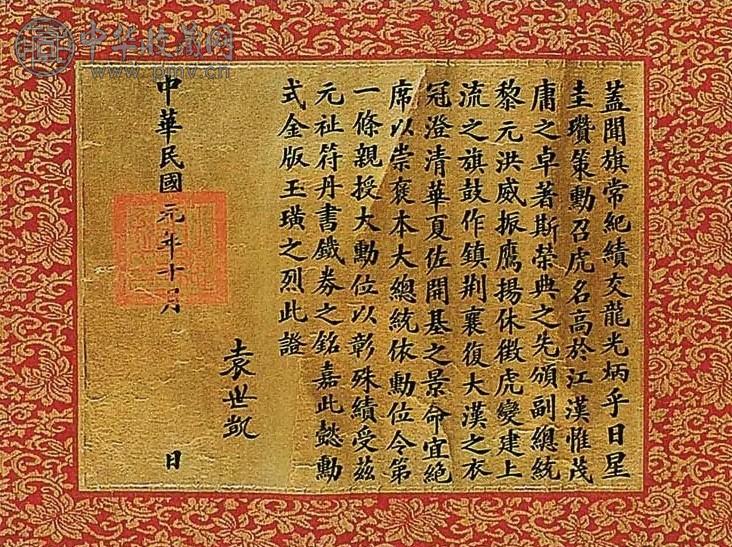 中华收藏网
www.pmv.cn
蓋聞旗常紀績交龍光炳乎日星
圭瓚策勳召虎名高於江漢惟茂
庸之卓著斯榮典之先頒副總統
黎元洪威振鷹揚休徵虎變建上
流之旗鼓作鎮荆襄復大漢之衣
冠澄清華夏佐開基之景命宜絕
席以崇褒本大總統依勳位令第
一條親授大勳位以彰殊績受茲
元祉符丹書鐵券之銘嘉此懿勳
式金版玉璜之烈此證
袁世凱
中華民國元年十月 日